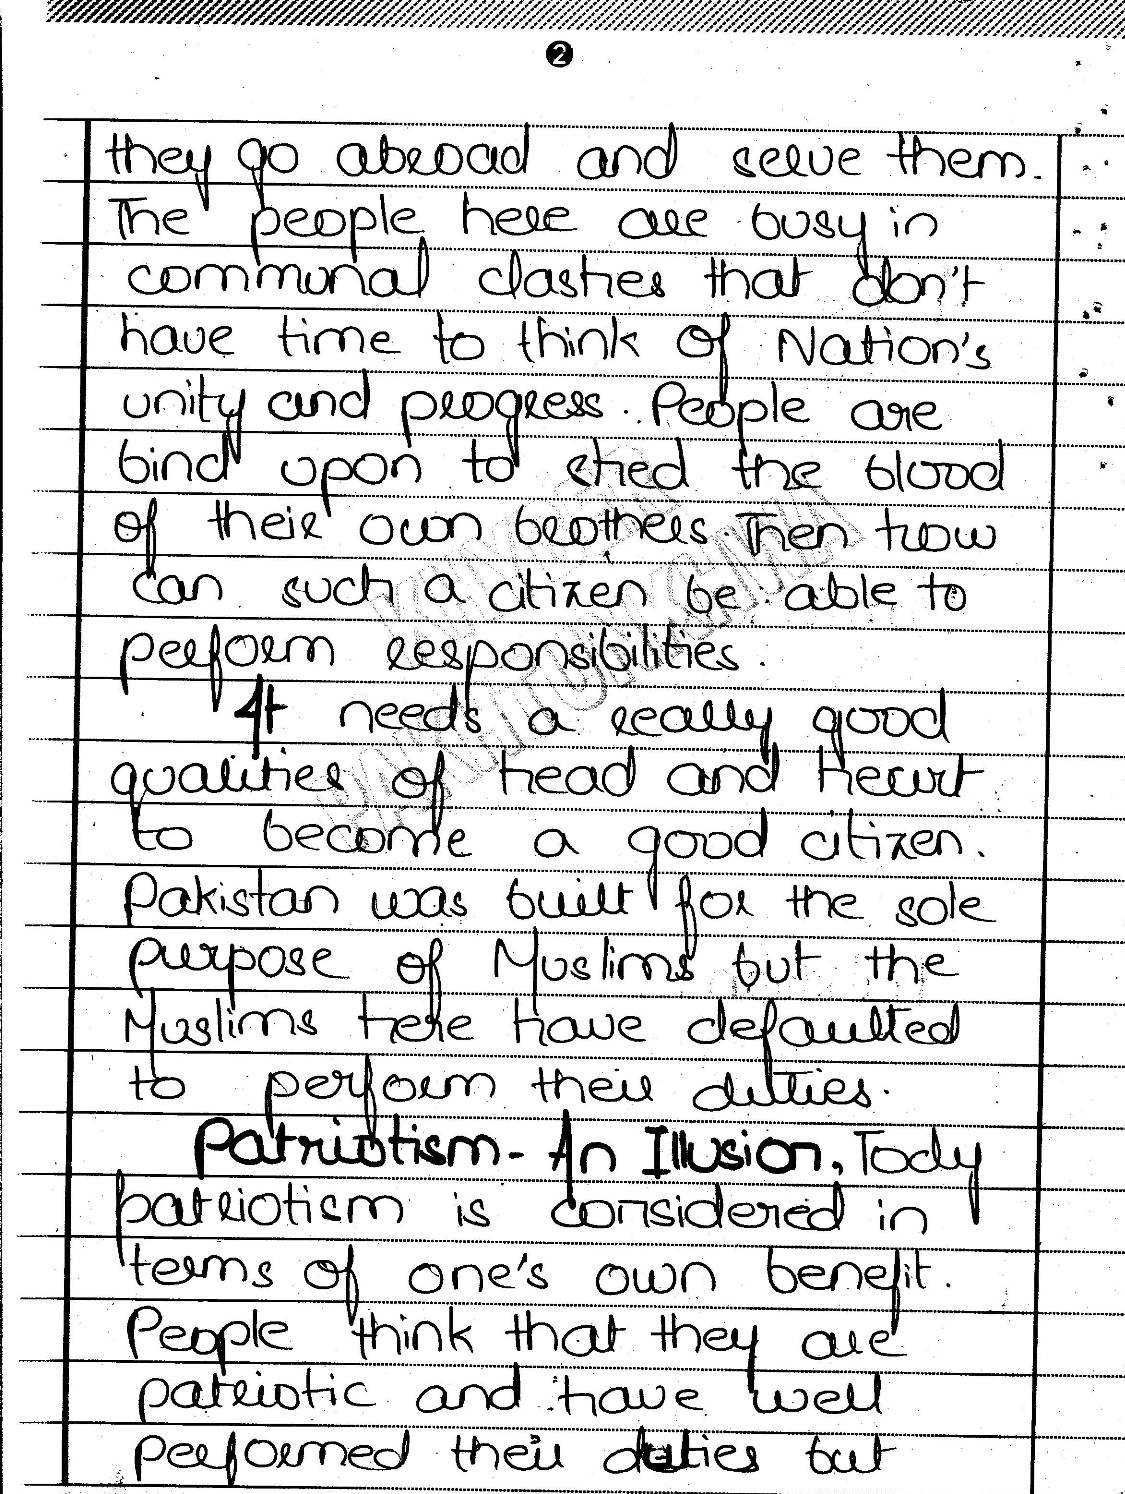 2
they go abroad and serve them.
The people here are busy in
communal clashes that don't
have time to think of Nation's
unity and progress. People are
bind upon to shed the blood
of their own brothers. Then how
can such a citizen be able to
perform responsibilities.
It needs a really good
qualities of head and heart
to become a good citizen.
Pakistan was built for the sole
purpose of Muslims but the
Muslims here have defaulted
to perform their duties.
Patriotism - An Illusion, Tody
patriotism is considered in
terms of one's own benefit.
People think that they are
patriotic and have well
performed their duties but